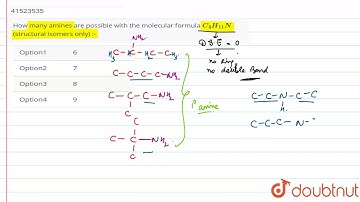 41523535
How many amines are possible with the molecular formula C4H11N
(structural isomers only) :-
Option1 6
Option2 7
Option3 8
Option4 9
NH2
H3C-CH-CH2-CH3
C-C-C-C-NH2
C-C-C-NH2
C
C
C-C-NH2
C
1° amine
D.B.E = 0
no Ring
no double Bond
C-C-N-C-C
H
C-C-C-N-
doubtnut